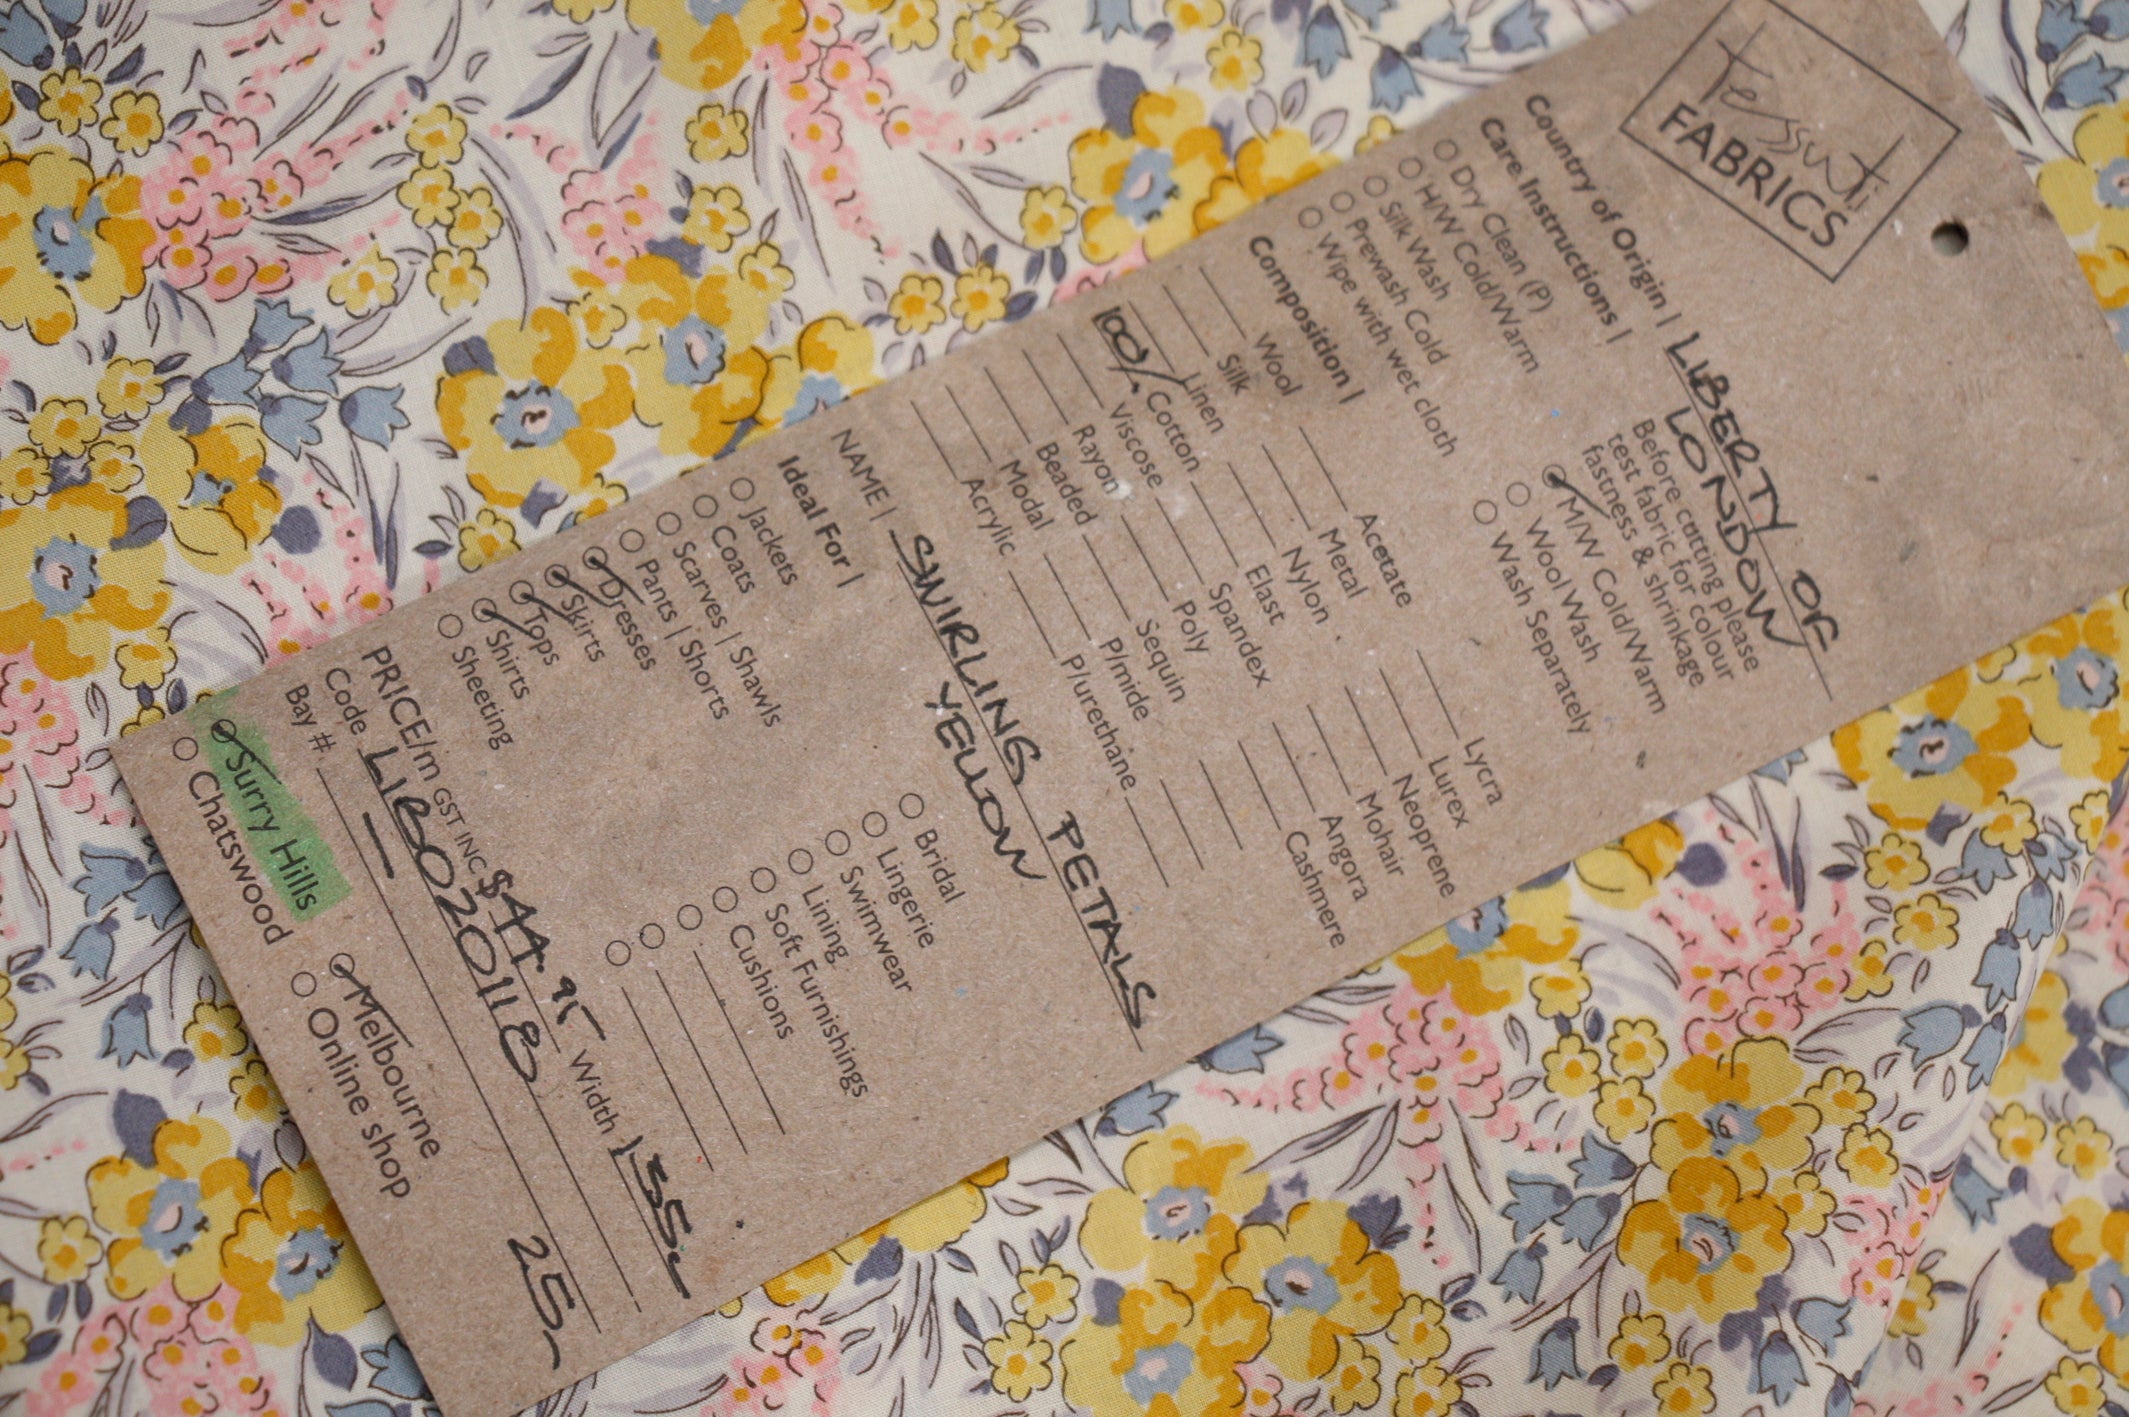 Tessuti
FABRICS
Country of Origin | LIBERTY OF
LONDON
Care Instructions |
Before cutting please
test fabric for colour
fastness & shrinkage
Dry Clean (P)
H/W Cold/Warm
Silk Wash
Prewash Cold
Wipe with wet cloth
M/W Cold/Warm
Wool Wash
Wash Separately
Composition |
Wool
Silk
Linen
100% Cotton
Viscose
Rayon
Beaded
Modal
Acrylic
Acetate
Metal
Nylon
Elast
Spandex
Poly
Sequin
P/mide
P/urethane
Lycra
Lurex
Neoprene
Mohair
Angora
Cashmere
NAME | SWIRLING PETALS
YELLOW
Ideal For |
Jackets
Coats
Scarves | Shawls
Pants | Shorts
Dresses
Skirts
Tops
Shirts
Sheeting
Bridal
Lingerie
Swimwear
Lining
Soft Furnishings
Cushions
PRICE/m GST INC $44.95 Width 135c
Code LIB020118
Bay # — 25
Surry Hills
Chatswood
Melbourne
Online shop